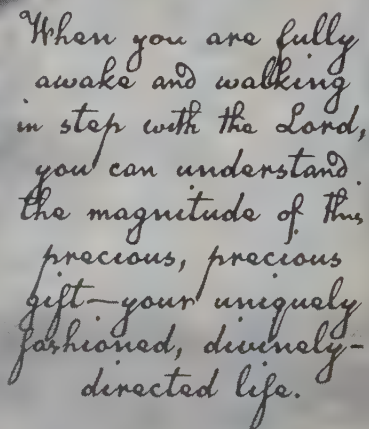 When you are fully
awake and walking
in step with the Lord,
you can understand
the magnitude of this
precious, precious
gift—your uniquely
fashioned, divinely-
directed life.